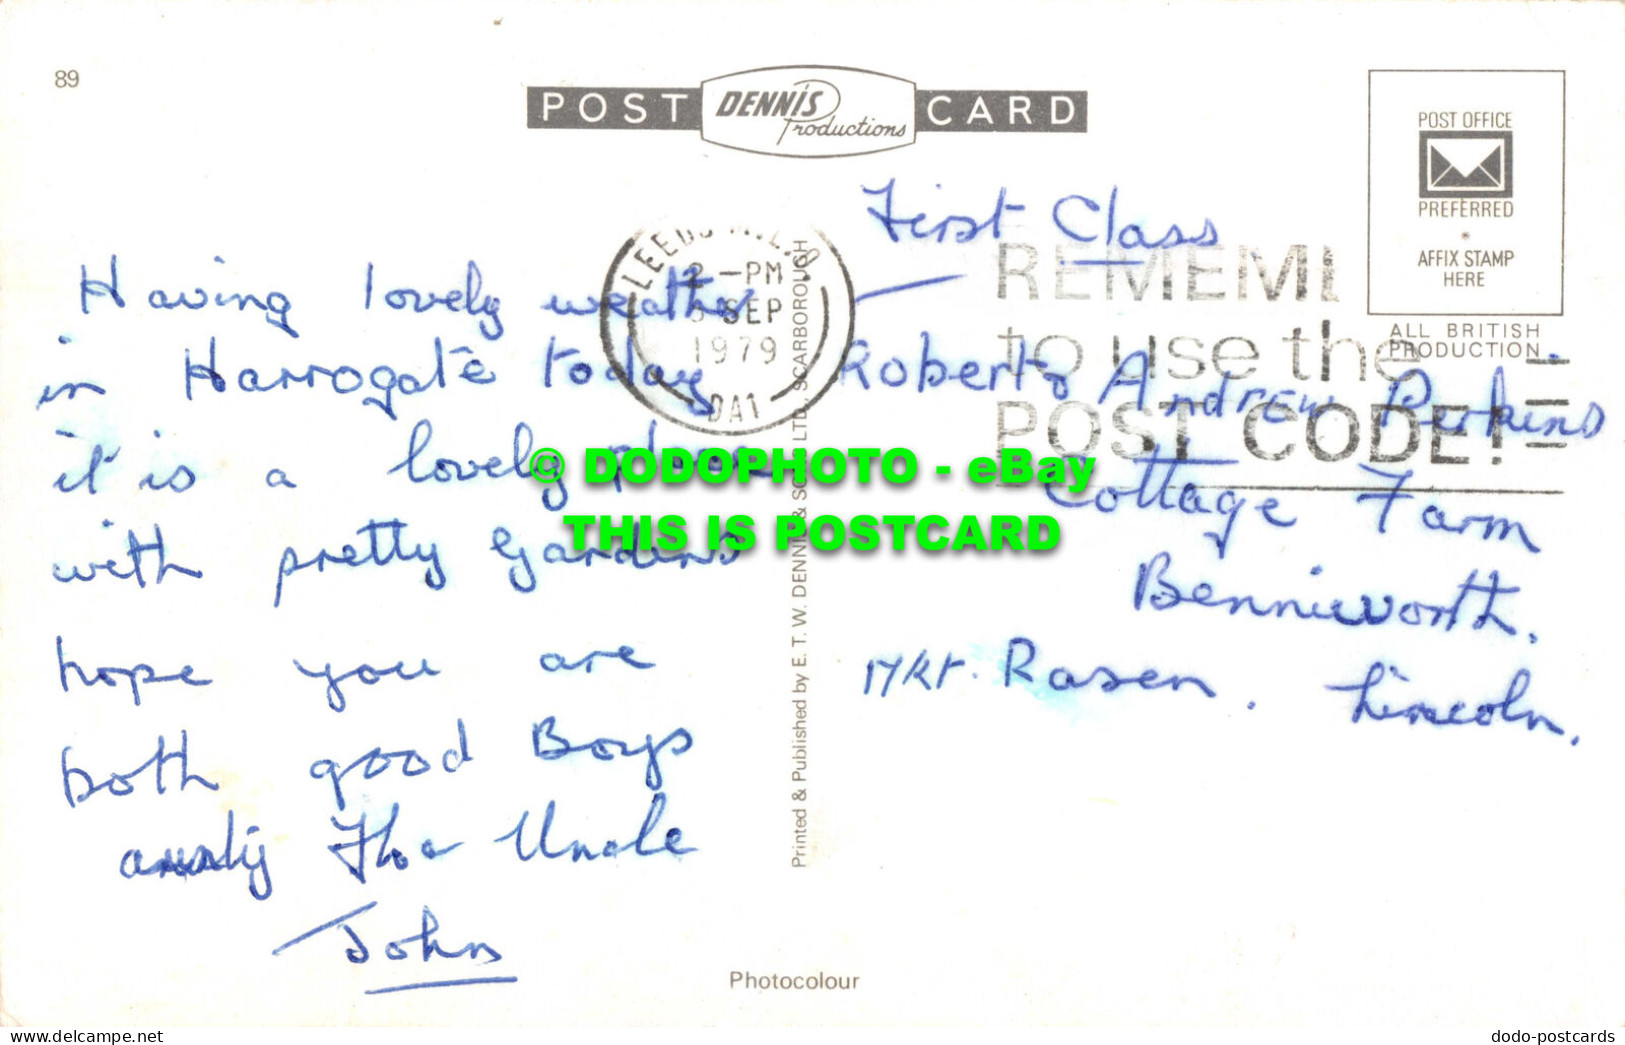 89
POST DENNIS Productions CARD
POST OFFICE
PREFERRED
AFFIX STAMP
HERE
ALL BRITISH
PRODUCTION.
LEEDS
PM
SEP
1979
DA1
REMEM
to use the
POST CODE!
First Class
Having lovely weather
in Harrogate today
it is a lovely place
with pretty Gardens
hope you are
both good Boys
Uncle
John
Robert & Andrew Perkins
Cottage Farm
Benniworth.
Mkt. Rasen. Lincoln.
Printed & Published by E. T. W. DENNIS & SONS LTD., SCARBOROUGH
Photocolour
© DODOPHOTO - eBay
THIS IS POSTCARD
Posted Mon, 08 Jul 2024 16:29:13 GMT
dodo-postcards